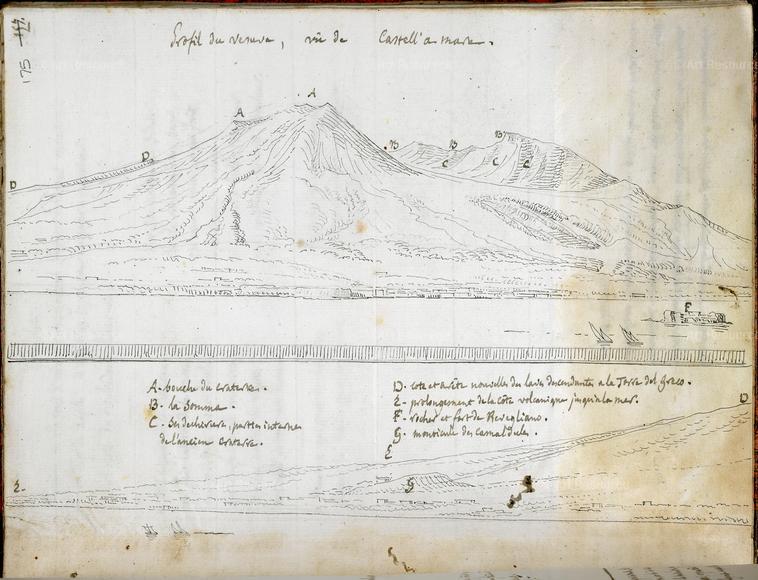 175
Profil du vesuve, vûe de Castell'a mare.
A
A
B
B
B
C
C
C
D
D
F
A - bouche du craterre.
B - la Somma.
C - Ses dechirures, parties internes
de l'ancien craterre.
D - cote et arête nouvelles des laves descendantes a la Torre del Greco.
E - prolongement de la côte volcanique jusqu'a la mer.
F - rocher et fort de Revegliano.
G - monticule des Camaldules.
D
E
E
G